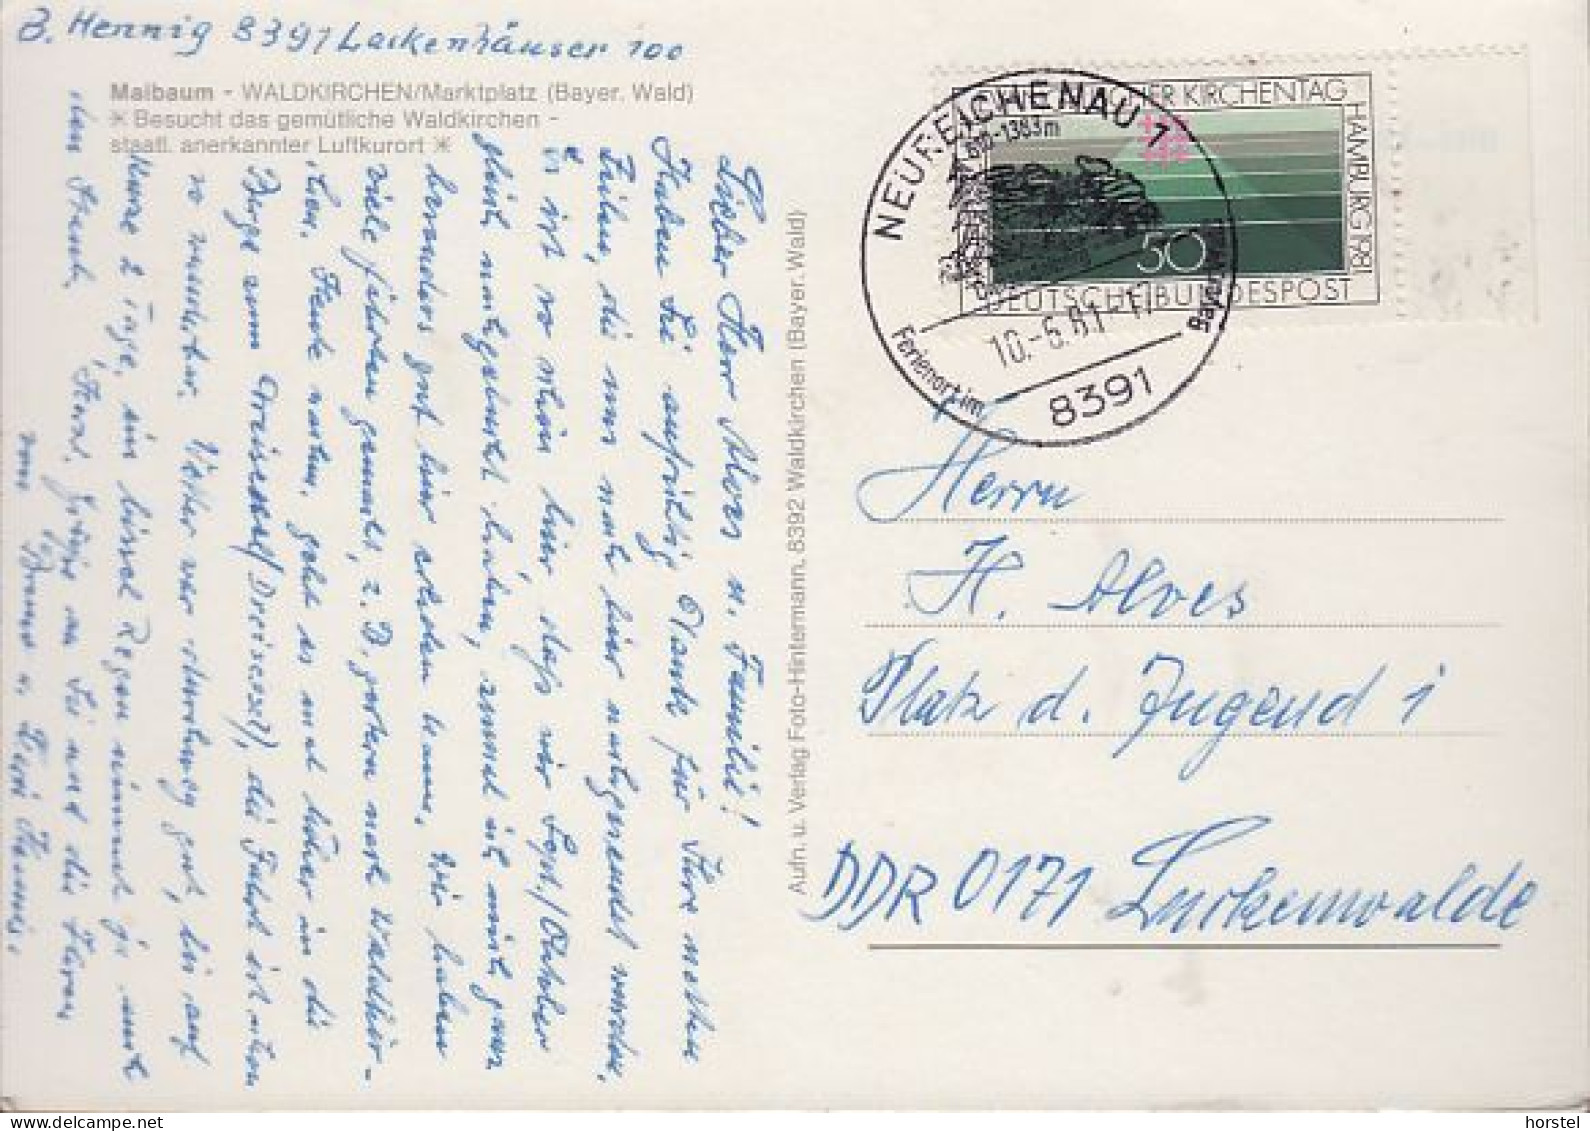 B. Hennig 8391 Lackenhäuser 100
Maibaum - WALDKIRCHEN/Marktplatz (Bayer. Wald)
✳ Besucht das gemütliche Waldkirchen -
staatl. anerkannter Luftkurort ✳
Lieber Herr Alves u. Familie!
Haben Sie aufrichtig Dank für Ihre netten
Zeilen, die uns nach hier nachgesendet wurden.
Es ist so schön hier daß wir Sept./Oktober
gleich nachgebucht haben, zumal ich mich ganz
besonders gut hier erholen kann. Wir haben
viele Fahrten gemacht, z. B. gestern nach Waldkir-
chen. Heute geht es mal höher in die
Berge zum Dreisessel (Dreisessel), die Fahrt ist schon
so wunderbar. Wetter war durchweg gut, bis auf
kurze 2 Tage, ein bissel Regen nimmt ja nicht
den Freude. Herzl. Grüße an Sie und die Ihren,
von Bruno u. Hennig.
Aufn. u. Verlag Foto-Hintermann, 8392 Waldkirchen (Bayer. Wald)
DEUTSCHER KIRCHENTAG
HAMBURG 1981
50
DEUTSCHE BUNDESPOST
NEUREICHENAU 1
-1383m
10.-6.81-17
Ferienort im
Bayer. Wald
8391
Herrn
H. Alves
Platz d. Jugend 1
DDR 0171 Luckenwalde
horstel
delcampe.net